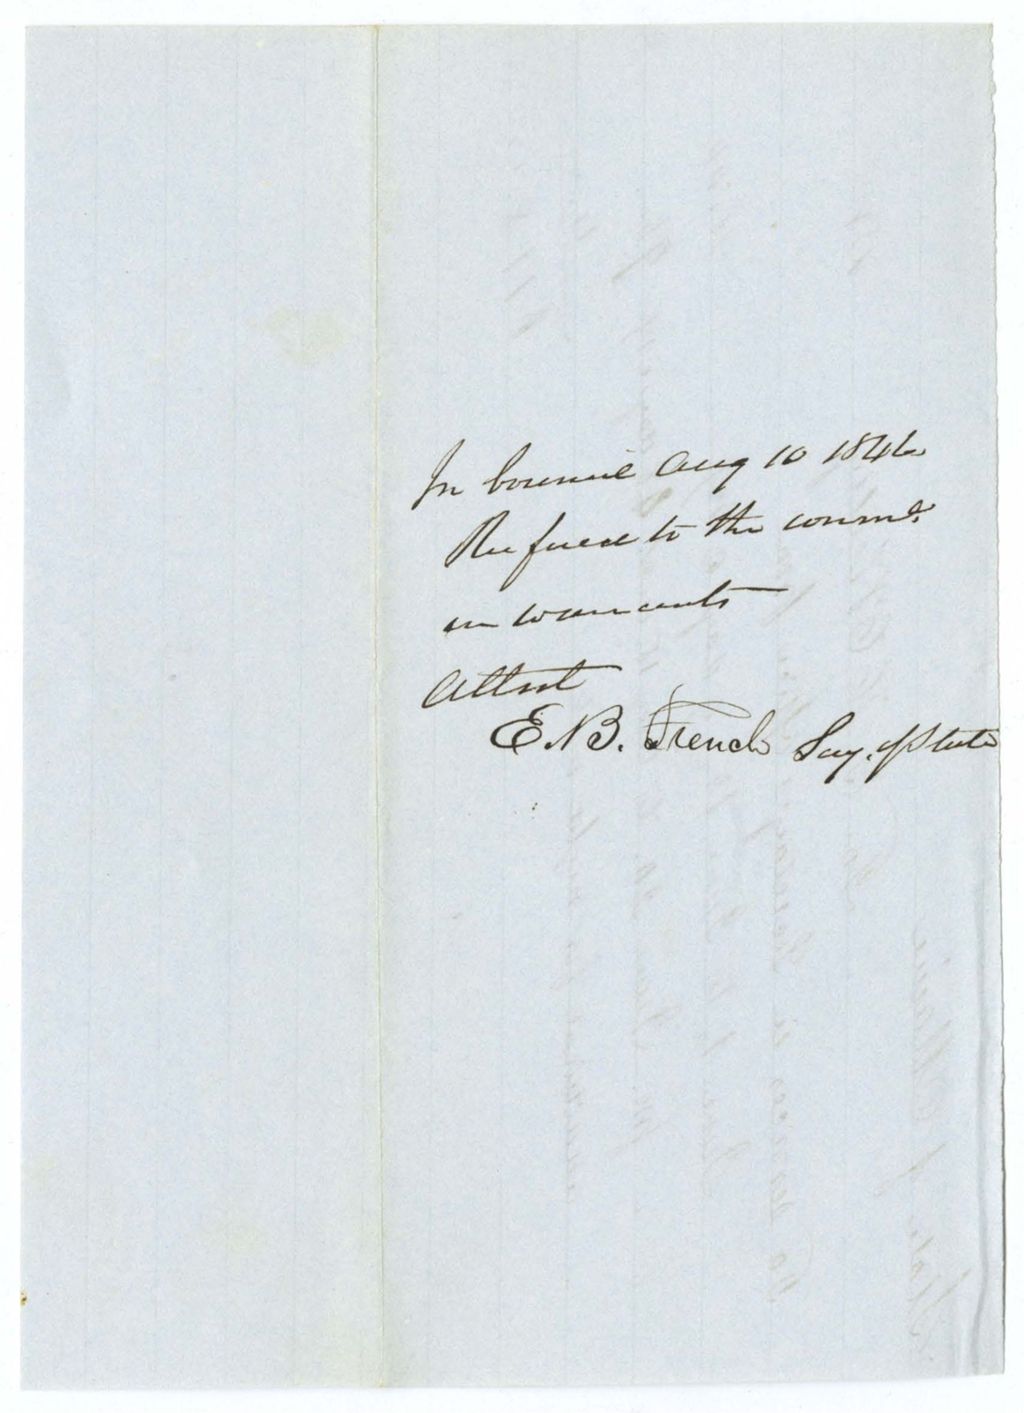 In Council Aug 10 1846
Referred to the comme.
on warrants
Attest
E. B. French Secy. of State